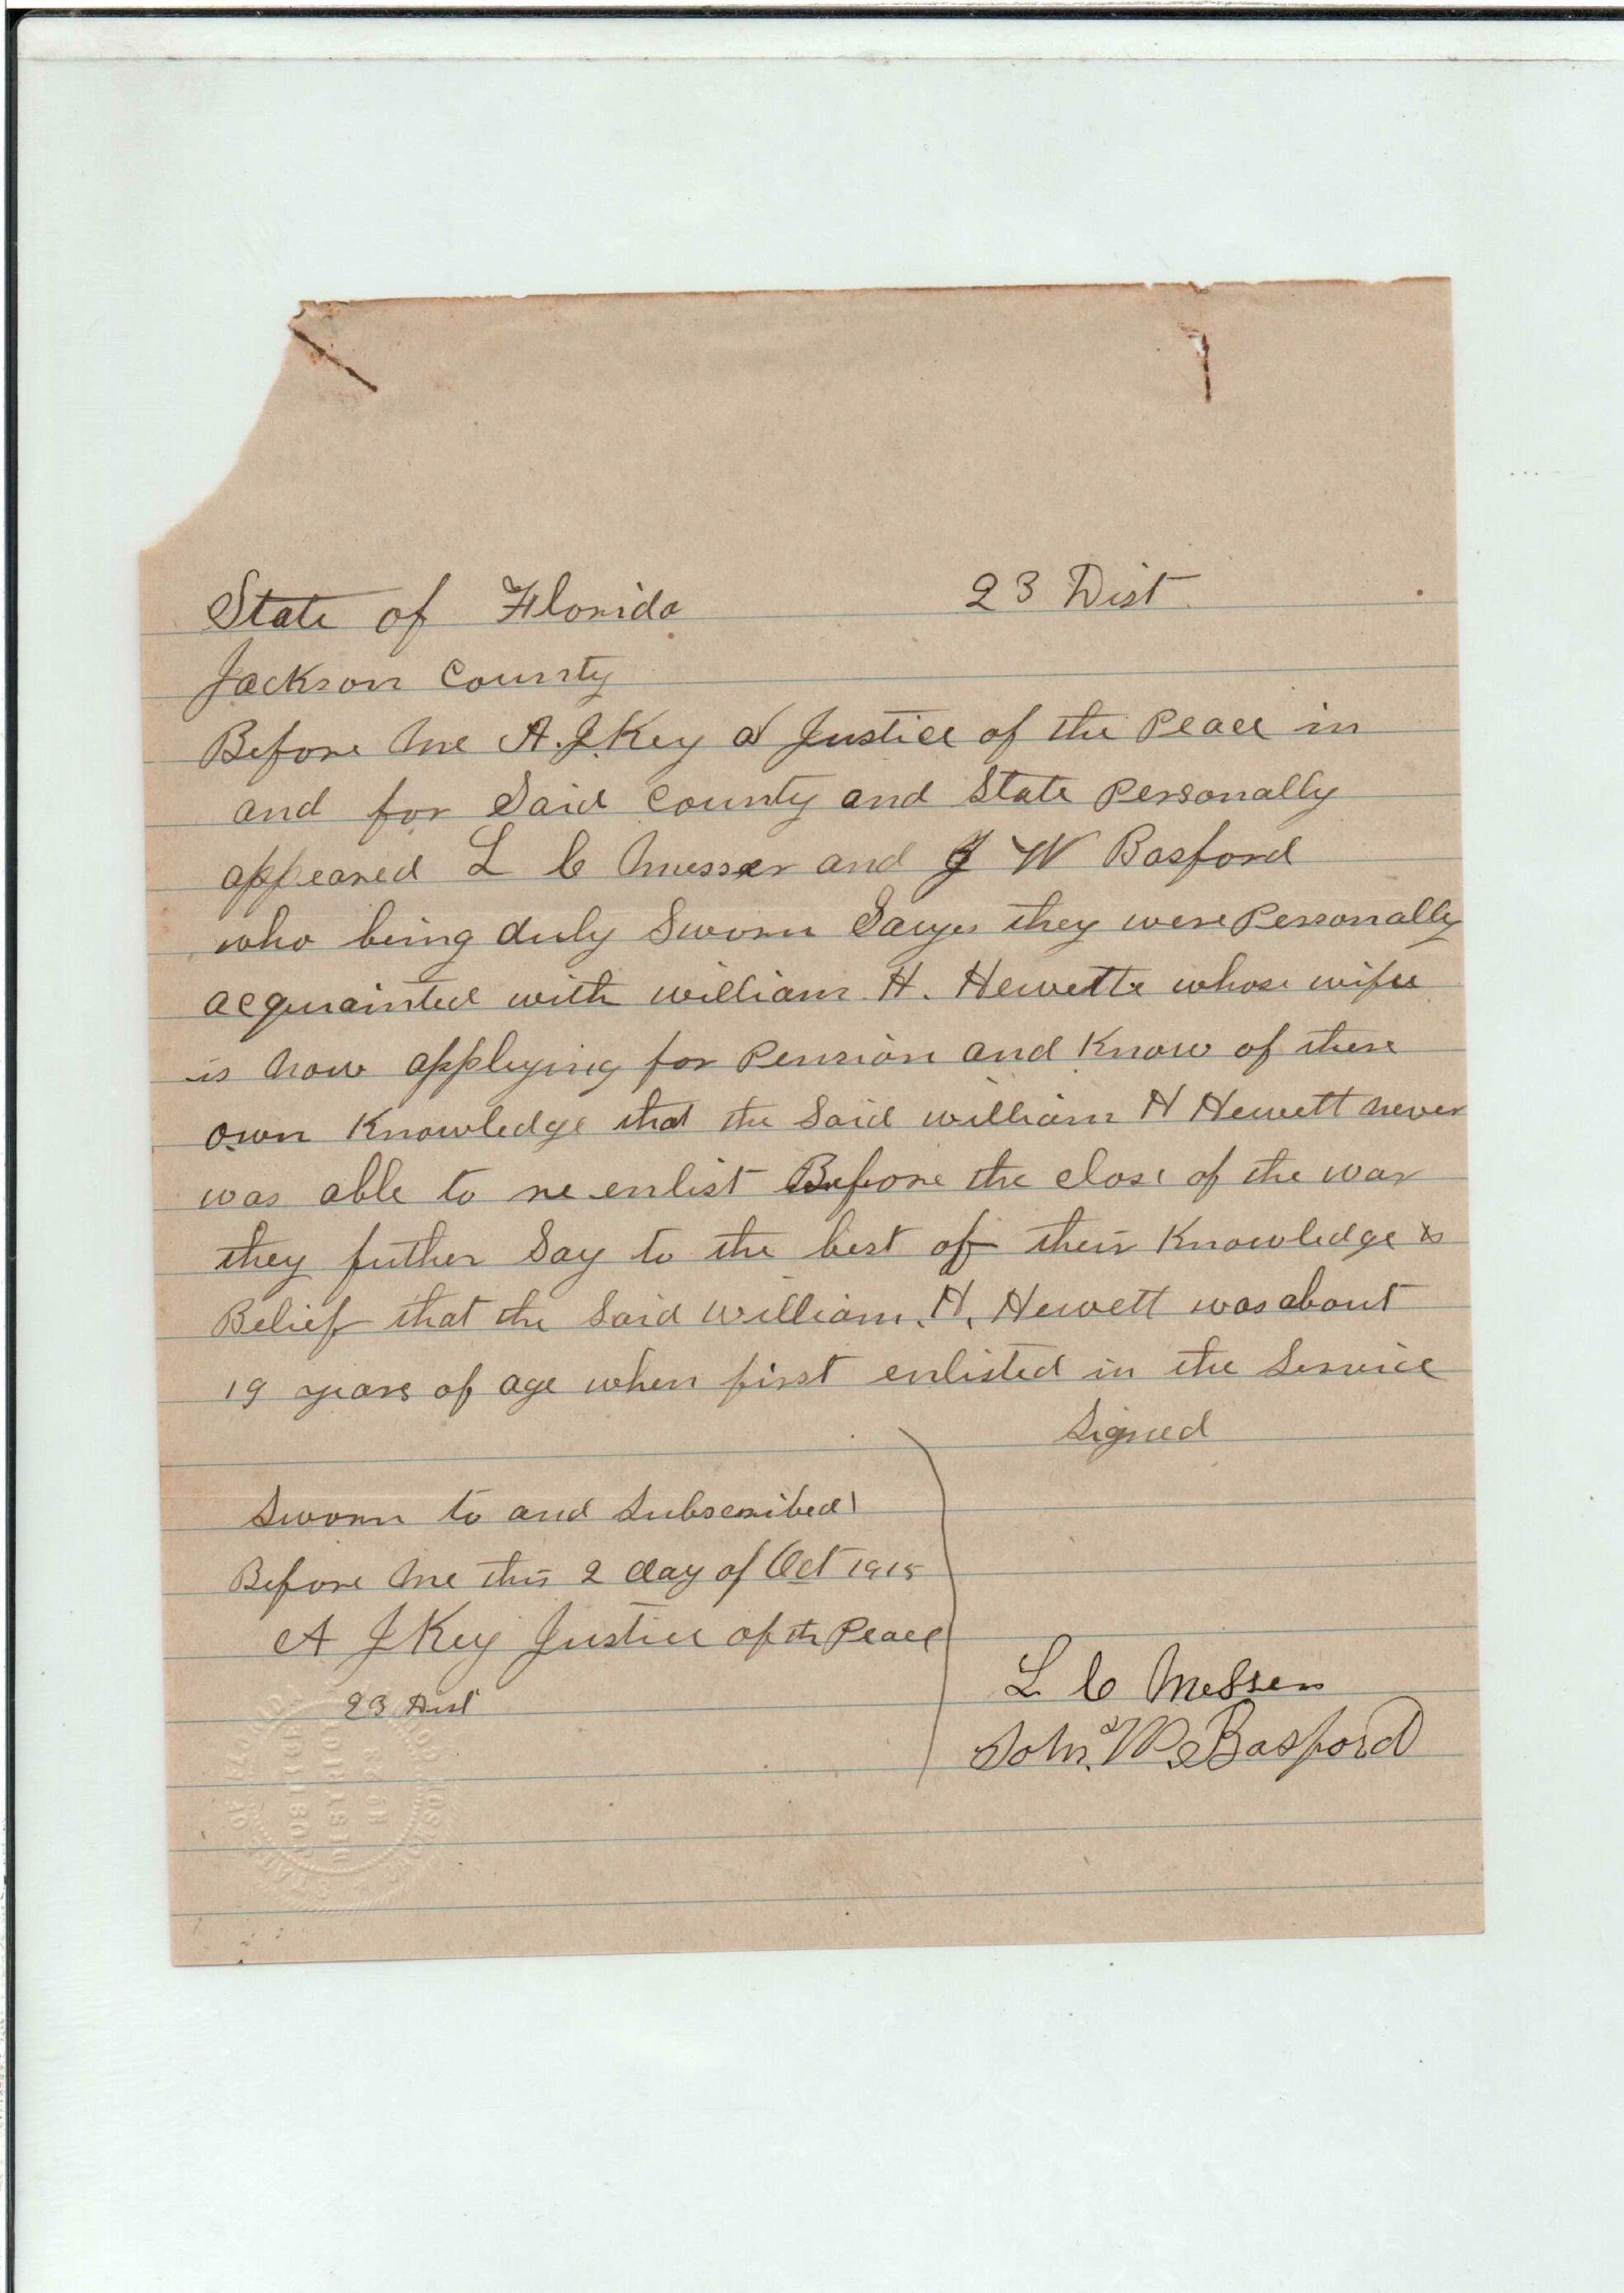 State of Florida 23 Dist
Jackson County
Before me A. J. Key a Justice of the Peace in
and for Said County and State Personally
appeared L C Messer and J W Basford
who being duly Sworn Says they were Personally
acquainted with william H. Hewette whose wife
is now applying for Pension and Know of there
own Knowledge that the Said william H Hewett never
was able to re enlist Before the close of the war
they futher Say to the best of their Knowledge &
Belief that the Said william. H. Hewett was about
19 years of age when first enlisted in the Service
Signed
Sworn to and Subscribed
Before me this 2 day of Oct 1915
A J Key Justice of th Peace
23 Dist
L C Messer
John W Basford